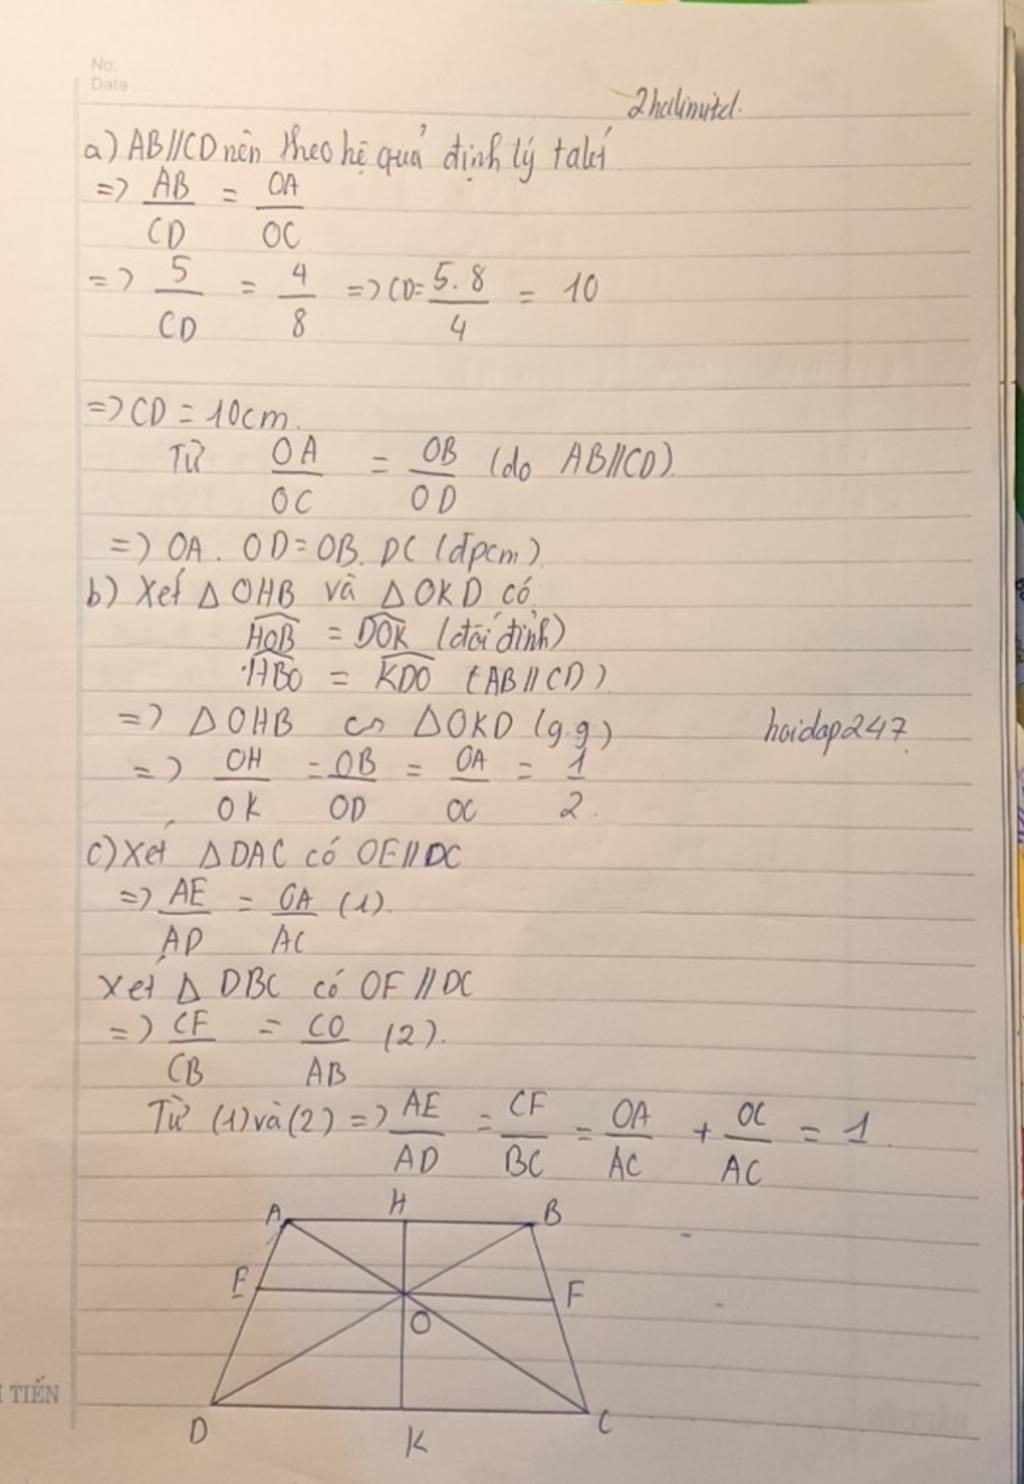 No.
Date
2halimited.
a) AB//CD nên theo hệ quả định lý talét
=> AB/CD = OA/OC
=> 5/CD = 4/8 => CD = 5.8/4 = 10
=> CD = 10cm.
Từ OA/OC = OB/OD (do AB//CD).
=> OA. OD = OB. DC (đpcm).
b) Xét △OHB và △OKD có
HOB = DOK (đối đỉnh)
HBO = KDO (AB//CD).
=> △OHB ∽ △OKD (g.g)
hoidap247.
=> OH/OK = OB/OD = OA/OC = 1/2.
c) Xét △DAC có OE//DC
=> AE/AD = OA/AC (1).
Xét △ DBC có OF//DC
=> CF/CB = CO/AB (2).
Từ (1) và (2) => AE/AD = CF/BC = OA/AC + OC/AC = 1.
A H B
E F
O
D K C
TIẾN